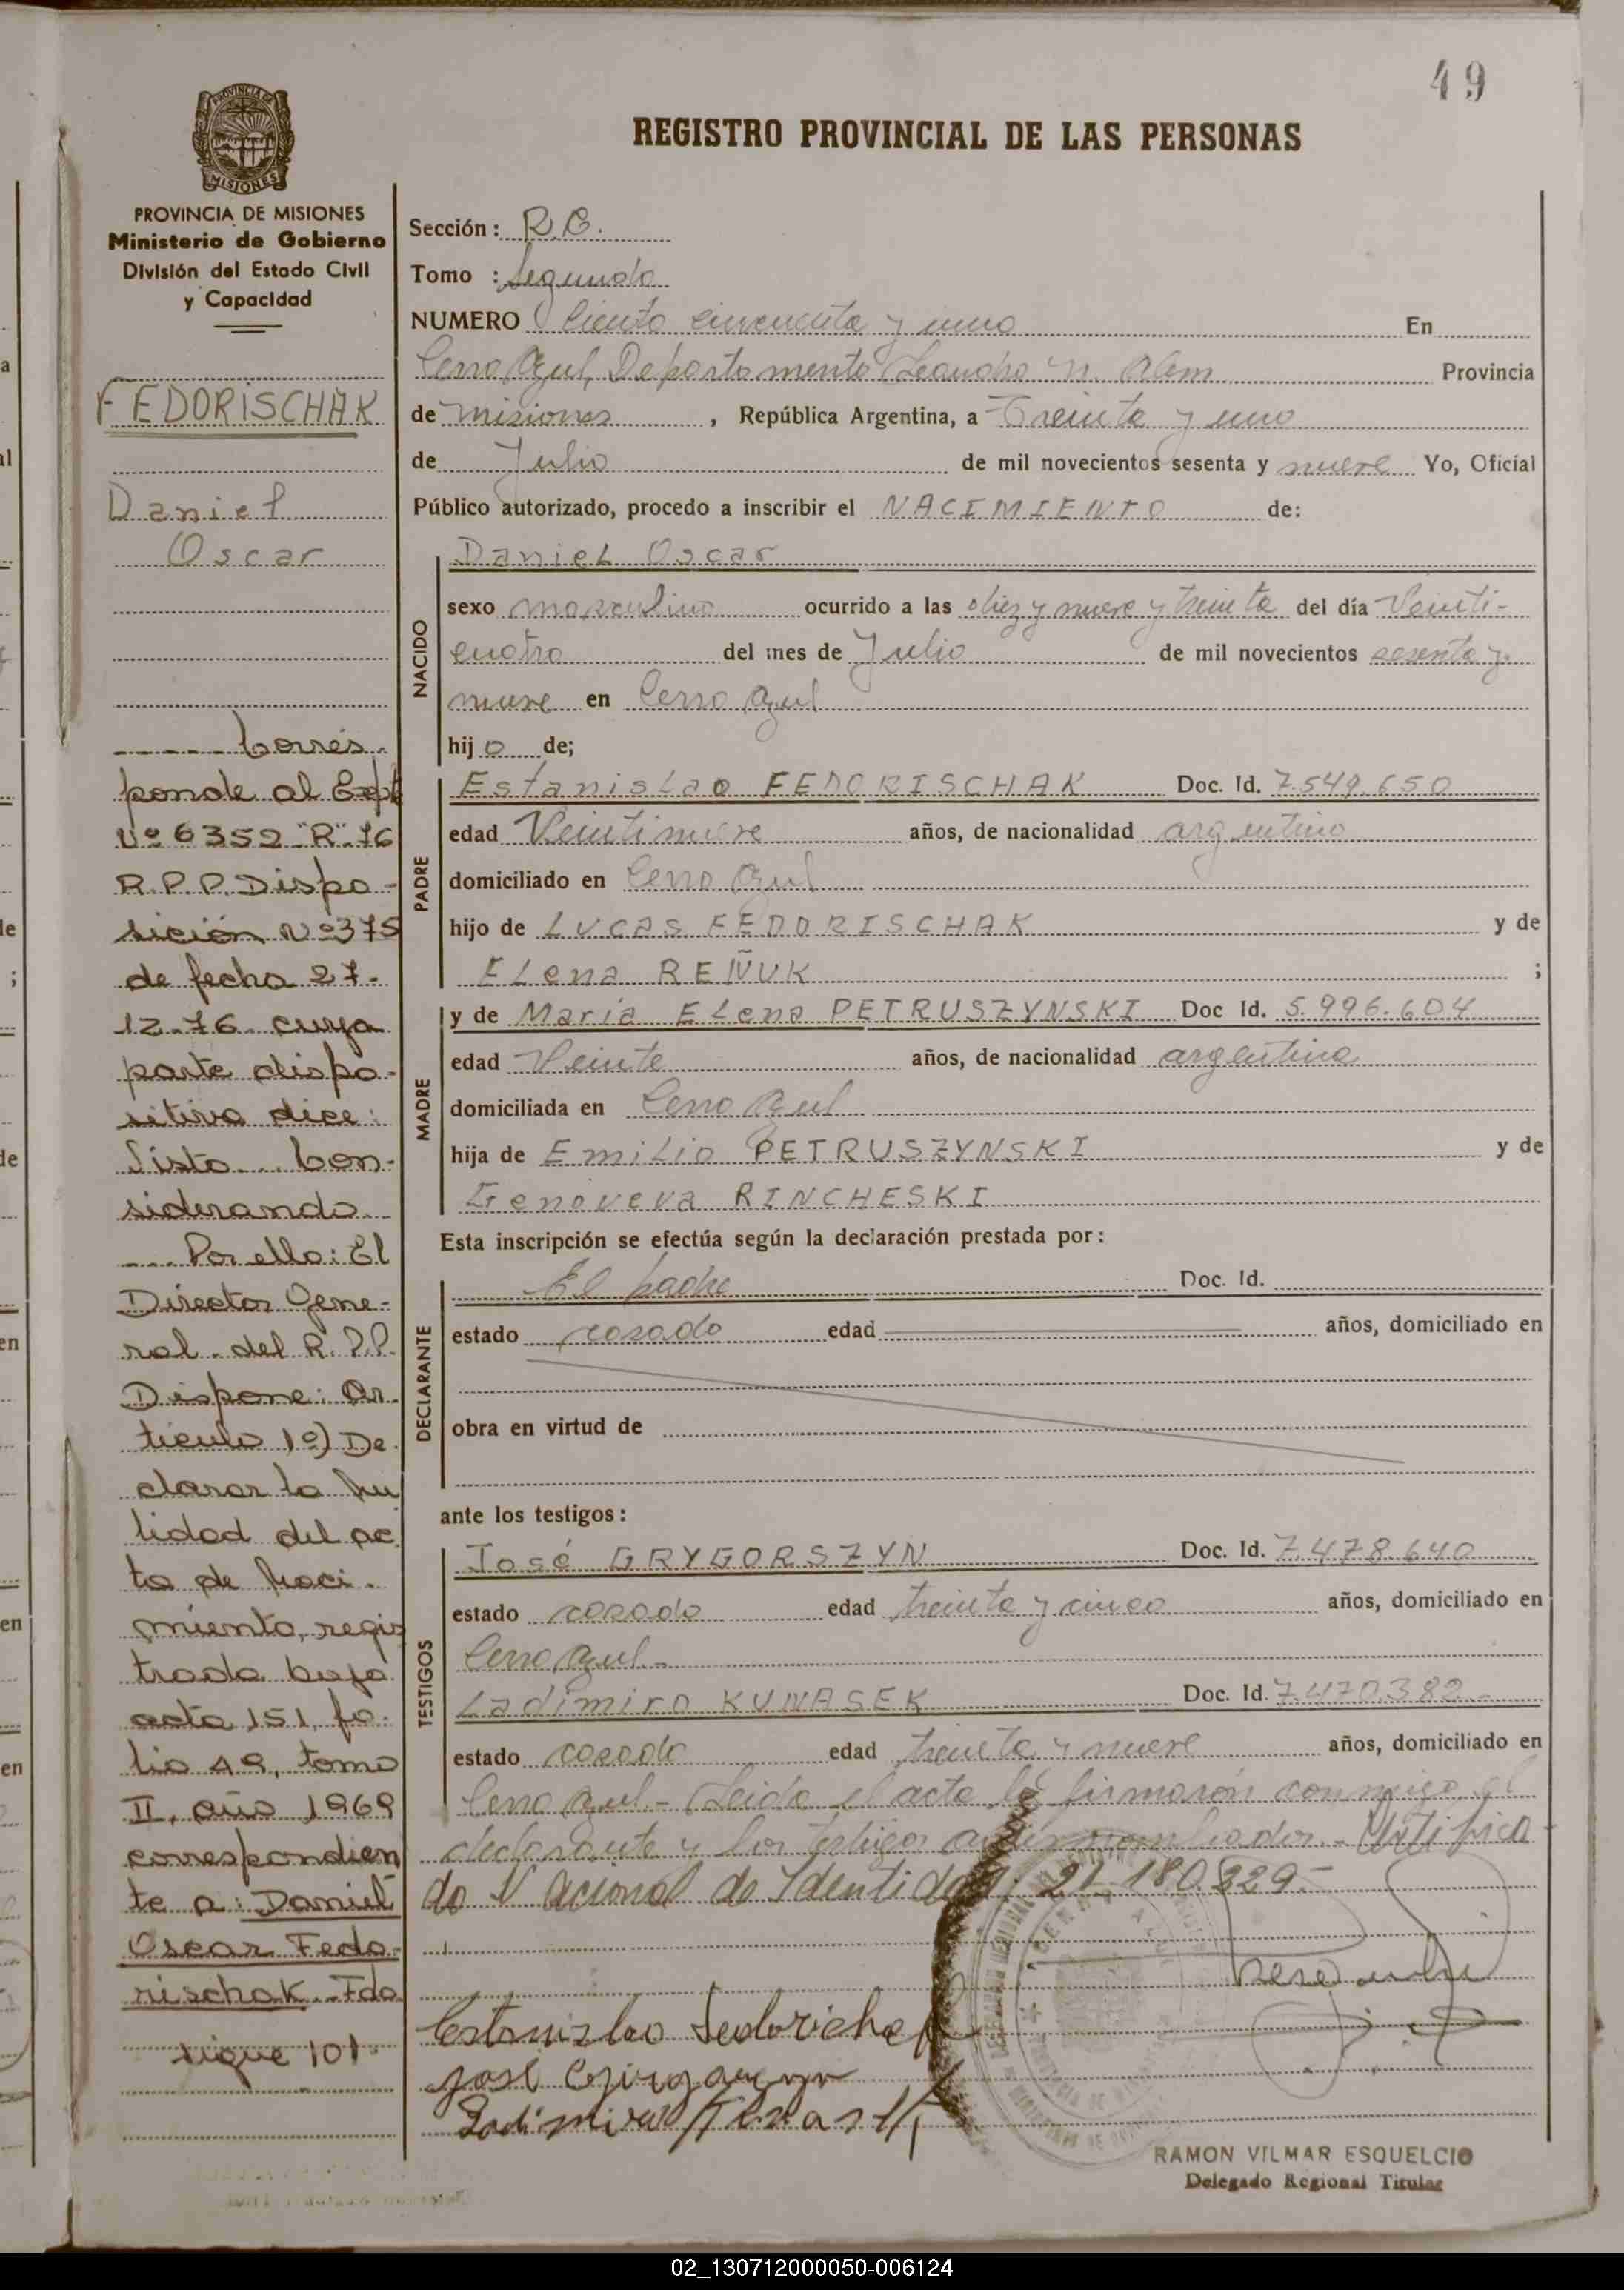 49
PROVINCIA DE
MISIONES
REGISTRO PROVINCIAL DE LAS PERSONAS
PROVINCIA DE MISIONES
Ministerio de Gobierno
División del Estado Civil
y Capacidad
FEDORISCHAK
Daniel
Oscar
----- Corres-
ponde al Expte
Nº 6352 "R" 76
R.P.P. Dispo-
sición Nº 375
de fecha 27-
12-76 cuya
parte dispo-
sitiva dice:
Visto... Con-
siderando
.... Por ello: El
Director Gene-
ral del R.P.P.
Dispone: Ar-
tículo 1º) De-
clarar la nu
lidad del ac
to de naci-
miento, regis
trado bajo
acta 151, fo-
lio 49, tomo
II, año 1969
correspondien
te a: Daniel
Oscar Fedo-
rischak. Fdo.
sigue 101.
Sección: R.C.
Tomo : Segundo
NUMERO Ciento cincuenta y uno En
Cerro Azul, Departamento Leandro N. Alem Provincia
de Misiones , República Argentina, a Treinta y uno
de Julio de mil novecientos sesenta y nueve Yo, Oficial
Público autorizado, procedo a inscribir el NACIMIENTO de:
NACIDO
Daniel Oscar
sexo masculino ocurrido a las diez y nueve y treinta del día Veinti-
cuatro del mes de Julio de mil novecientos sesenta y
nueve en Cerro Azul
hijo de;
PADRE
Estanislao FEDORISCHAK Doc. Id. 7.549.650
edad Veintinueve años, de nacionalidad argentino
domiciliado en Cerro Azul
hijo de Lucas FEDORISCHAK y de
Elena REÑUK ;
MADRE
y de María Elena PETRUSZYNSKI Doc Id. 5.996.604
edad Veinte años, de nacionalidad argentina
domiciliada en Cerro Azul
hija de Emilio PETRUSZYNSKI y de
Genoveva RINCHESKI
Esta inscripción se efectúa según la declaración prestada por:
DECLARANTE
El padre Doc. Id.
estado casado edad años, domiciliado en
obra en virtud de
ante los testigos:
TESTIGOS
José GRYGORSZYN Doc. Id. 7.478.640
estado casado edad treinta y cinco años, domiciliado en
Cerro Azul-
Ladimiro KUNASEK Doc. Id. 7.470.382-
estado casado edad treinta y nueve años, domiciliado en
Cerro Azul - Leida el acta la firmaron conmigo, el
declarante y los testigos arriba nombrados.- Certifica-
do Nacional de Identidad: 21.180.829.-
Estanislao Fedorichak
José
Ladimiro
RAMON VILMAR ESQUELCIO
Delegado Regional Titular
02_130712000050-006124